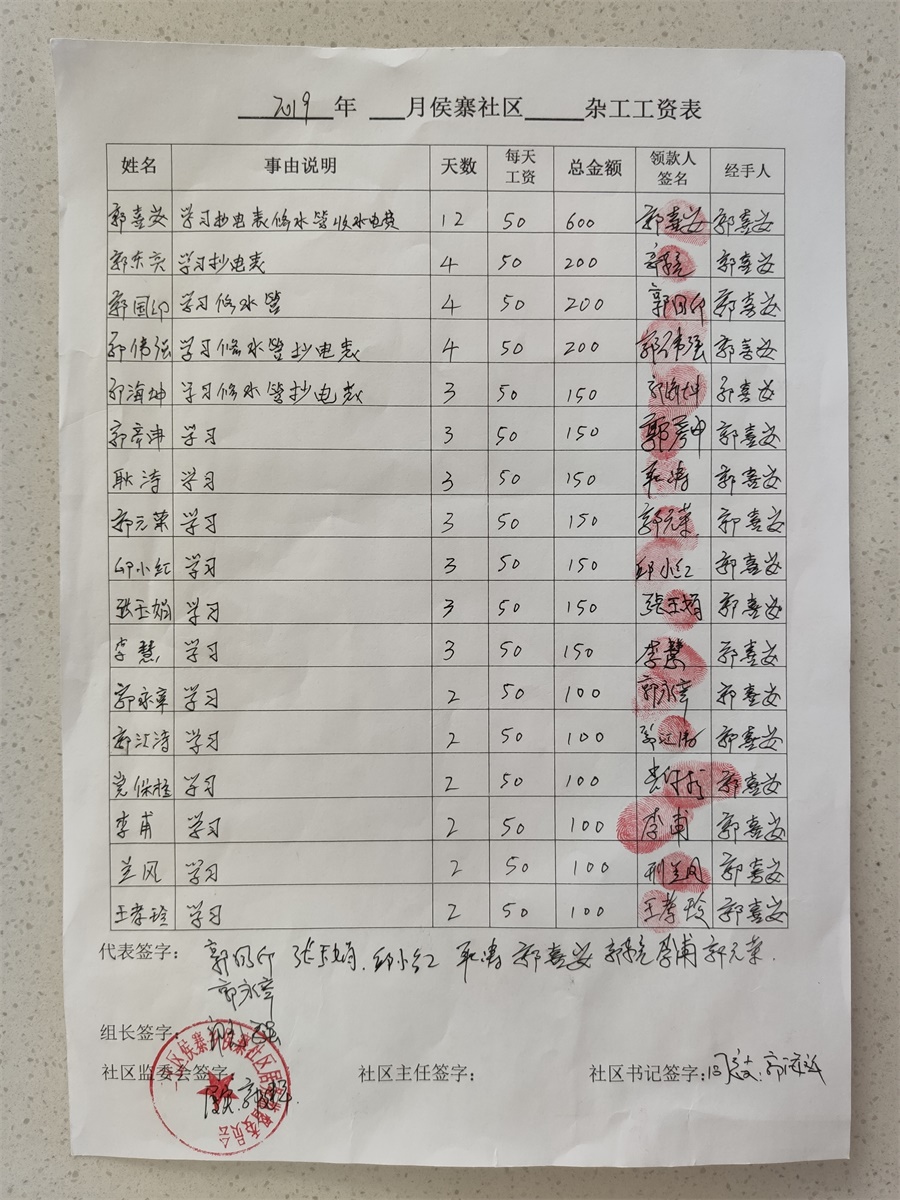 2019 年 月侯寨社区 杂工工资表
姓名 事由说明 天数 每天工资 总金额 领款人签名 经手人
郭喜安 学习抄电表修水管收水电费 12 50 600 郭喜安 郭喜安
郭东亮 学习抄电表 4 50 200 郭喜安
郭国印 学习修水管 4 50 200 郭国印 郭喜安
郭伟强 学习修水管抄电表 4 50 200 郭伟强 郭喜安
郭海坤 学习修水管抄电表 3 50 150 郭海坤 郭喜安
郭彦冲 学习 3 50 150 郭彦冲 郭喜安
耿涛 学习 3 50 150 耿涛 郭喜安
郭元荣 学习 3 50 150 郭元荣 郭喜安
邱小红 学习 3 50 150 邱小红 郭喜安
张玉娟 学习 3 50 150 张玉娟 郭喜安
李慧 学习 3 50 150 李慧 郭喜安
郭永幸 学习 2 50 100 郭永幸 郭喜安
郭江涛 学习 2 50 100 郭江涛 郭喜安
党保 学习 2 50 100 郭喜安
李甫 学习 2 50 100 李甫 郭喜安
兰风 学习 2 50 100 荆兰风 郭喜安
王孝玲 学习 2 50 100 王孝玲 郭喜安
代表签字: 郭国印 张玉娟 邱小红 耿涛 郭喜安 李甫 郭元荣
郭永幸
组长签字:
社区监委会签字: 社区主任签字: 社区书记签字: